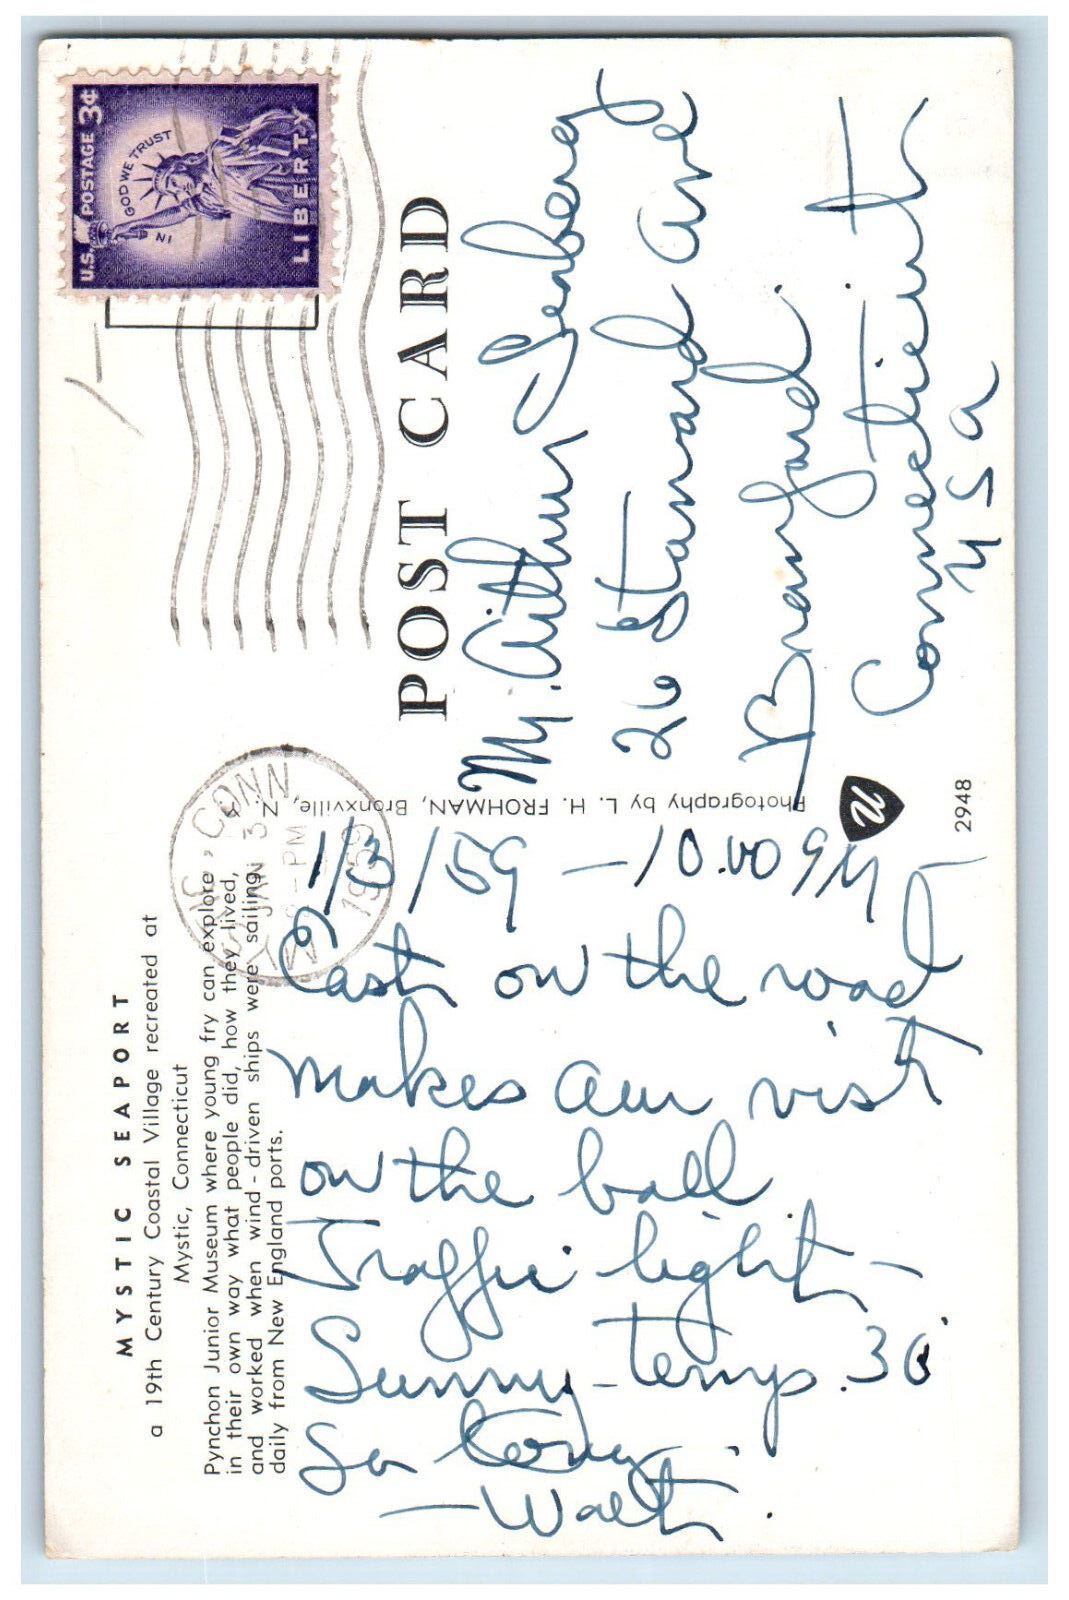 MYSTIC SEAPORT
a 19th Century Coastal Village recreated at
Mystic, Connecticut
Pynchon Junior Museum where young fry can explore
in their own way what people did, how they lived,
and worked when wind-driven ships were sailing
daily from New England ports.
1/3/59 — 10.00
East on the road
makes our visit
on the ball
Traffic light —
Sunny - temp. 30
So long
— Walt.
Photography by L. H. FROHMAN, Bronxville, N. Y.
n
2948
MYSTIC, CONN
JAN 3
PM
1959
U.S. POSTAGE 3¢
IN GOD WE TRUST
LIBERTY
POST CARD
Mr. Arthur Seaberg
26 Stannard Ave
Branford.
Connecticut
U S A